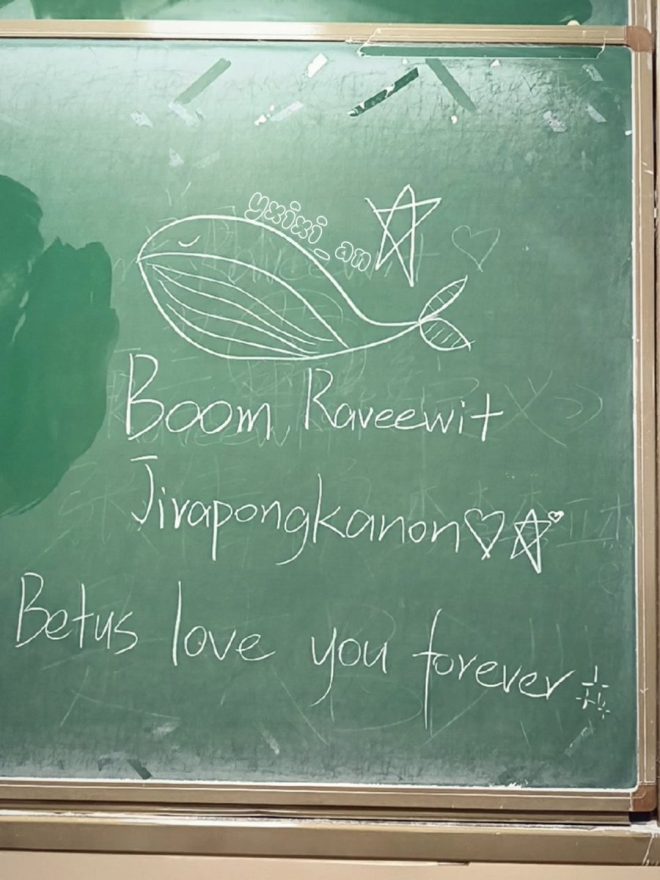 yxixi_an
Boom Raveewit
Jirapongkanon♡☆
Betus love you forever